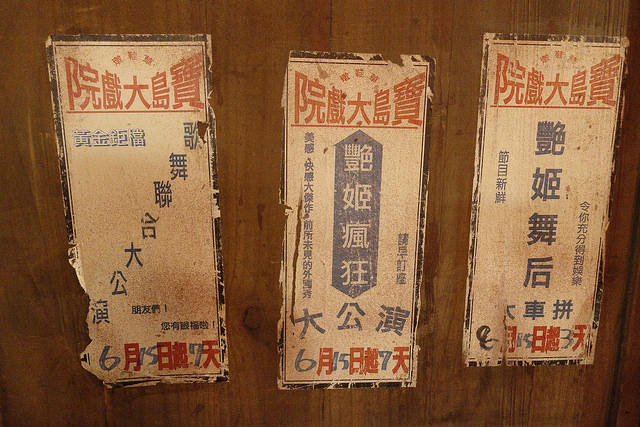 寶島大戲院
黃金鉅檔
歌舞聯合大公演
朋友們！
您有眼福啦！
6月15日起7天
寶島大戲院
美感、快感大傑作、前所未見的外國秀
艷姬瘋狂
請早訂座
大公演
6月15日起7天
寶島大戲院
令你充分得到娛樂
艷姬舞后
節目新鮮
大車拼
月15日起3天